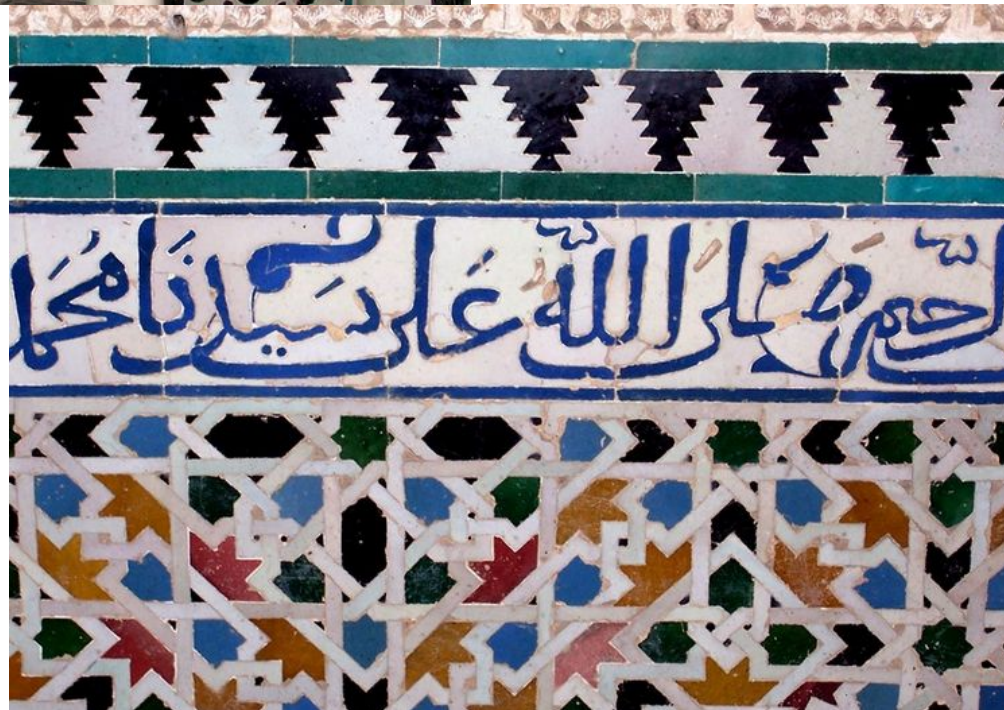 الرحيم صلى الله على سيدنا محمد